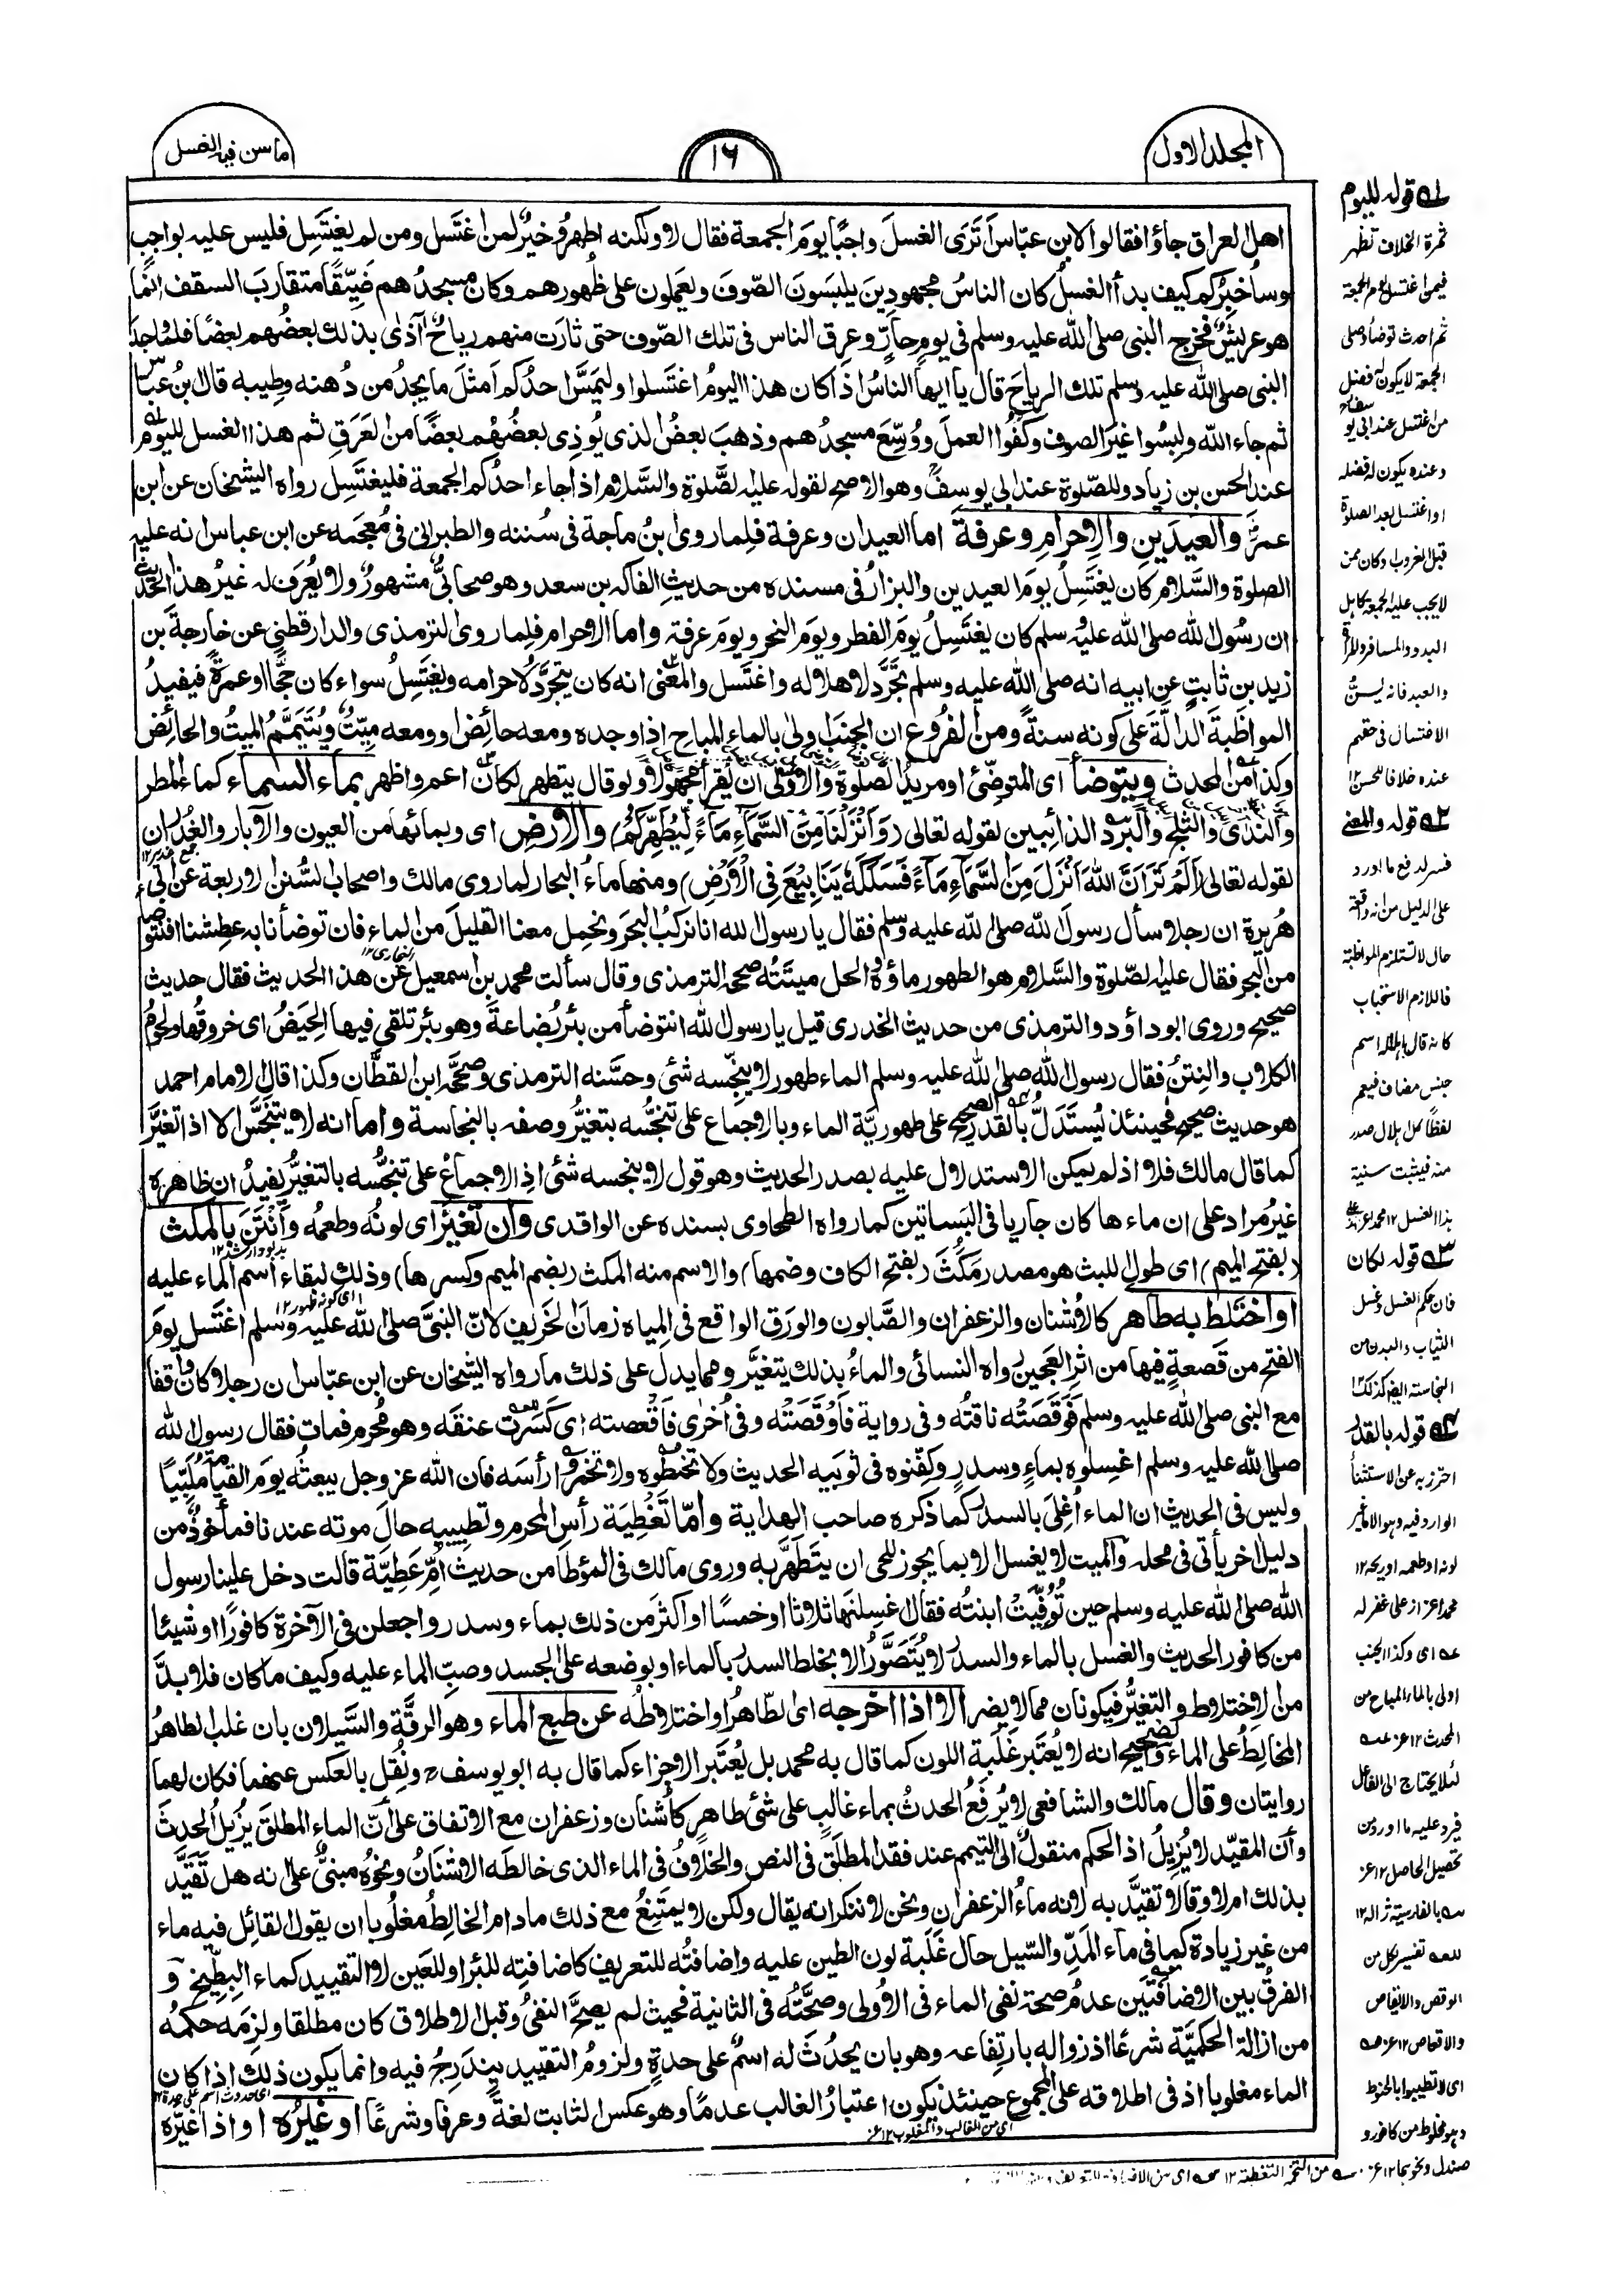 المجلد الاول
١٦
ما سن فيه الغسل
اهل العراق جاؤا فقالوا لابن عبّاس أَتَرَى الغسلَ واجبًا يومَ الجمعة فقال لا ولكنه اطهرُ وخيرٌ لمن اغتَسل ومن لم يغتَسِل فليس عليه بواجبٍ
وسأُخبِرُكم كيف بدأ الغسلُ كان الناسُ مجهودِينَ يلبَسونَ الصّوفَ ويَعمَلون على ظُهورهم وكان مسجدُهم ضَيِّقًا متقارِبَ السقف اِنَّما
هو عريشٌ فخرج النبى صلى الله عليه وسلم فى يومٍ حارٍّ وعرِق الناس فى تلك الصّوف حتى ثارَت منهم رياحٌ آذٰى بذلك بعضُهم بعضًا فلمّا وجدَ
النبى صلى الله عليه وسلم تلك الرياحَ قال يا ايها الناسُ اذا كان هذا اليومُ اغتَسلوا وليَمَسَّ احدُكم اَمثلَ ما يجدُ من دُهنه وطيبه قال ابنُ عبّاس
ثم جاء الله ولَبِسُوا غيرَ الصوف وكُفُوا العملَ ووُسِّعَ مسجدُهم وذهبَ بعضُ الذى يُوذِى بعضُهُم بعضًا من العَرَقِ ثم هذا الغسل لليوم
عند الحسن بن زياد وللصّلوة عند ابى يوسفَ وهو الاصح لقوله عليه الصَّلوة والسَّلام اذا جاء احدُكم الجمعة فليغتَسِل رواه الشيخان عن ابن
عمرَ والعيدَينِ والاِحرامِ وعرفةَ اما العيدان وعرفة فلِما روى ابنُ ماجة فى سُننه والطبرانى فى مُعجَمه عن ابن عباس انه عليه
الصلوة والسَّلام كان يغتَسِلُ يومَ العيدين والبزارُ فى مسنده من حديثِ الفاكه بن سعد وهو صحابىٌّ مشهورٌ ولا يُعرَف له غيرُ هذا الحديث
ان رسُولَ الله صلى الله عليه وسلم كان يغتَسِلُ يومَ الفطر ويومَ النحر ويومَ عرفة واما الاحرام فلِما روى الترمذى والدارقطنى عن خارجةَ بن
زيد بن ثابتٍ عن ابيه انه صلى الله عليه وسلم تجَرَّد لاهلاله واغتَسل والمعنى انه كان يتجرَّدُ لاحرامه ويغتَسِلُ سواء كان حجًّا او عمرةً فيفيدُ
المواظَبةَ الدالَّةَ على كونه سنةً ومن الفروع ان الجنبَ اولى بالماء المباح اذا وجده ومعه حائض او ومعه ميّتٌ ويُتَيَمَّمُ الميتُ والحائض
وكذا من المحدث ويتوضأ اى المتوضّئ او مريدُ الصَّلوة والاَولى ان يُقرأ مجهولا ولو قال يتطهر لكان اعم واظهر بماء السماء كماء المطر
والندىٰ والثلج والبَرَد الذائبين لقوله تعالى (وَأَنْزَلْنَا مِنَ السَّمَاءِ مَاءً لِّيُطَهِّرَكُمْ) والارضِ اى وبمائها من العيون والآبار والغُدران
لقوله تعالى (اَلَمْ تَرَ اَنَّ اللهَ اَنْزَلَ مِنَ السَّمَاءِ مَاءً فَسَلَكَهُ يَنَابِيْعَ فِى الْاَرْضِ) ومنها ماءُ البحار لما روى مالك واصحاب السُّنن الاربعة عن ابى
هُريرة ان رجلا سأل رسولَ الله صلى الله عليه وسلم فقال يا رسول الله انا نركبُ البحرَ ونحمِل معنا القليلَ من الماء فان توضأنا به عطِشنا افنَتَوضأ
من البحر فقال عليه الصّلوة والسَّلام هو الطهور ماؤه والحل ميتَتُه صححه الترمذى وقال سألت محمد بن اسمعيل عن هذا الحديث فقال حديث
صحيح وروى ابو داؤد والترمذى من حديث الخدرى قيل يا رسول الله انتوضأ من بئر بُضاعة وهو بئر تلقى فيها الحِيَضُ اى خروقُها ولحومُ
الكلاب والنتنُ فقال رسول الله صلى الله عليه وسلم الماء طهور لا ينجّسه شئ وحسَّنه الترمذى وصحَّحه ابن القطَّان وكذا قال الامام احمد
هو حديث صحيح فحينئذ يُستَدَلُّ بالقدر الصحيح على طهوريّة الماء وبالاجماع على تنجُّسه بتغيُّر وصفه بالنجاسة واما انه لا يتنجَّس الا اذا تغيَّر
كما قال مالك فلا اذ لم يمكن الاستدلال عليه بصدر الحديث وهو قول لا ينجسه شئ اذِ الاجماعُ على تنجُّسه بالتغيُّر يُفيدُ ان ظاهره
غيرُ مراد على ان ماءها كان جاريا فى البَساتين كما رواه الطحاوى بسنده عن الواقدى وان تغيَّرَ اى لونُه وطعمُه واَنْتَنَ بالمكث
(بفتح الميم) اى طول اللبث هو مصدر مكُثَ (بفتح الكاف وضمها) والاسم منه المكث (بضم الميم وكسرها) وذلك لبقاء اسم الماء عليه
او اختَلط به طاهر كالاُشنان والزعفران والصَّابون والورَق الواقع فى المياه زمانَ الخَريف لانّ النبىَّ صلى الله عليه وسلم اغتَسل يومَ
الفتح من قَصعةٍ فيها من اثر العجين رواه النسائى والماءُ بذلك يتغيَّر ومما يدل على ذلك ما رواه الشيخان عن ابن عبّاس ان رجلا كان واقفا
مع النبى صلى الله عليه وسلم فَوَقَصَتْه ناقتُه وفى رواية فَاَوْقَصَتْه وفى اُخرٰى فَاَقْعصته اى كسَرت عنقَه وهو مُحرم فمات فقال رسول الله
صلى الله عليه وسلم اغسِلوه بماءٍ وسدرٍ وكفِّنوه فى ثوبَيه الحديث ولا تحنِّطوه ولا تخمِّروا رأسَه فان الله عز وجل يبعثُه يومَ القيامة مُلَبِّيًا
وليس فى الحديث ان الماء اُغلِىَ بالسدر كما ذكره صاحب الهداية وامّا تَغْطِيَة رأس المحرم وتطييبه حالَ موته عندنا فمأخوذٌ من
دليل اٰخر يأتى فى محله والميت لا يغسل الا بما يجوز للحى ان يتَطهَّر به وروى مالك فى المؤطا من حديث اُمِّ عَطِيّة قالت دخل علينا رسول
الله صلى الله عليه وسلم حين تُوُفِّيَتْ ابنتُه فقال غسِلنَها ثلاثا او خمسًا او اكثرَ من ذلك بماء وسدر واجعلن فى الآخرة كافورًا او شيئا
من كافور الحديث والغسل بالماء والسدر لا يُتَصَوَّرُ الا بخلط السدر بالماء او بوضعه على الجسد وصبّ الماء عليه وكيف ما كان فلا بدَّ
من الاختلاط والتغيُّر فيكونان مما لا يضر الا اذا اخرجه اى الطّاهرُ او اختلاطُه عن طبع الماء وهو الرقّة والسَّيلان بان غلب الطاهرُ
المخالِطُ على الماء والصحيح انه لا يُعتَبر غَلَبة اللون كما قال به محمد بل يُعتَبر الاجزاء كما قال به ابو يوسف ونُقِل بالعكس عنهما فكان لهما
روايتان وقال مالك والشافعى لا يُرفَعُ الحدثُ بماء غالبٍ على شئ طاهرٍ كأُشنان وزعفران مع الاتفاق على اَنّ الماء المطلقَ يُزيلُ الحدثَ
وأن المقيّد لا يُزيلُ اذ الحكم منقولٌ الى التيمم عند فقد المطلَق فى النص والخلافُ فى الماء الذى خالطَه الاُشنانُ ونحوُه مبنىٌّ على انه هل تَقيَّد
بذلك ام لا وقالا تقيَّد به لانه ماءُ الزعفران ونحن لا ننكر انه يقال ولكن لا يمتَنِعُ مع ذلك ما دام المخالِطُ مغلوبا ان يقول القائل فيه ماء
من غير زيادة كما فى ماء المَدِّ والسّيل حال غَلَبة لون الطين عليه واضافتُه للتعريف كاضافتِه للبئر او للعَين لا التقييد كماء البِطِّيخ و
الفرقُ بين الاضافتَين عدمُ صحة نفى الماء فى الاُولى وصحَّتُه فى الثانية فحيث لم يصحَّ النفىُ وقبل الاطلاق كان مطلقا ولزِمَه حكمُه
من ازالة الحكميَّة شرعًا اذ زواله بارتفاعه وهو بان يحدُثَ له اسمٌ على حدةٍ ولزومُ التقييد يندَرِجُ فيه وانما يكون ذلك اذا كان
الماء مغلوبا اذ فى اطلاقه على المجموع حينئذ يكون اعتبارُ الغالب عدمًا وهو عكس الثابت لغةً وعرفا وشرعًا او غيَّرُه او اذا غيَّره
اى من الغالب والمغلوب ١٢ عز
قوله لليوم
ثمرة الخلاف تظهر
فيمن اغتسل يوم الجمعة
ثم احدث توضأ وصلى
الجمعة لا يكون له فضل
من اغتسل عند ابى يوسف
وعنده يكون له فضله
او اغتسل بعد الصلوة
قبل الغروب وكان ممن
لا يجب عليه الجمعة كاهل
البدو والمسافر والمرأة
والعبد فانه ليسنُّ
الاغتسال فى حقهم
عنده خلافا للحسن ١٢
قوله والمعنى
فسر لدفع ما اورد
على الدليل من انه واقعة
حال لا تستلزم المواظبة
فاللازم الاستحباب
كانه قال اهلاله اسم
جنس مضاف فيعم
لفظًا كل اهلال صدر
منه فيثبت سنية
هذا الغسل ١٢ محمد اعزاز على
قوله لكان
فان حكم الغسل وغسل
الثياب والبدن من
النجاسة ايضا كذلك ١٢
قوله بالقدر
احترز به عن الاستثناء
الوارد فيه وهو الا ما غير
لونه او طعمه او ريحه ١٢
محمد اعزاز على غفر له
عه اى وكذا الجنب
اولى بالماء المباح من
المحدث ١٢ عز عه
لئلا يحتاج الى الفاعل
فيرد عليه ما اورد من
تحصيل الحاصل ١٢ عز
بالفارسية ژاله ١٢
للعه تفسير لكل من
الوقص والايقاص
والاقعاص ١٢ عز
اى لا تطيبوا بالحنوط
وهو مخلوط من كافور و
صندل ونحوهما ١٢ عز